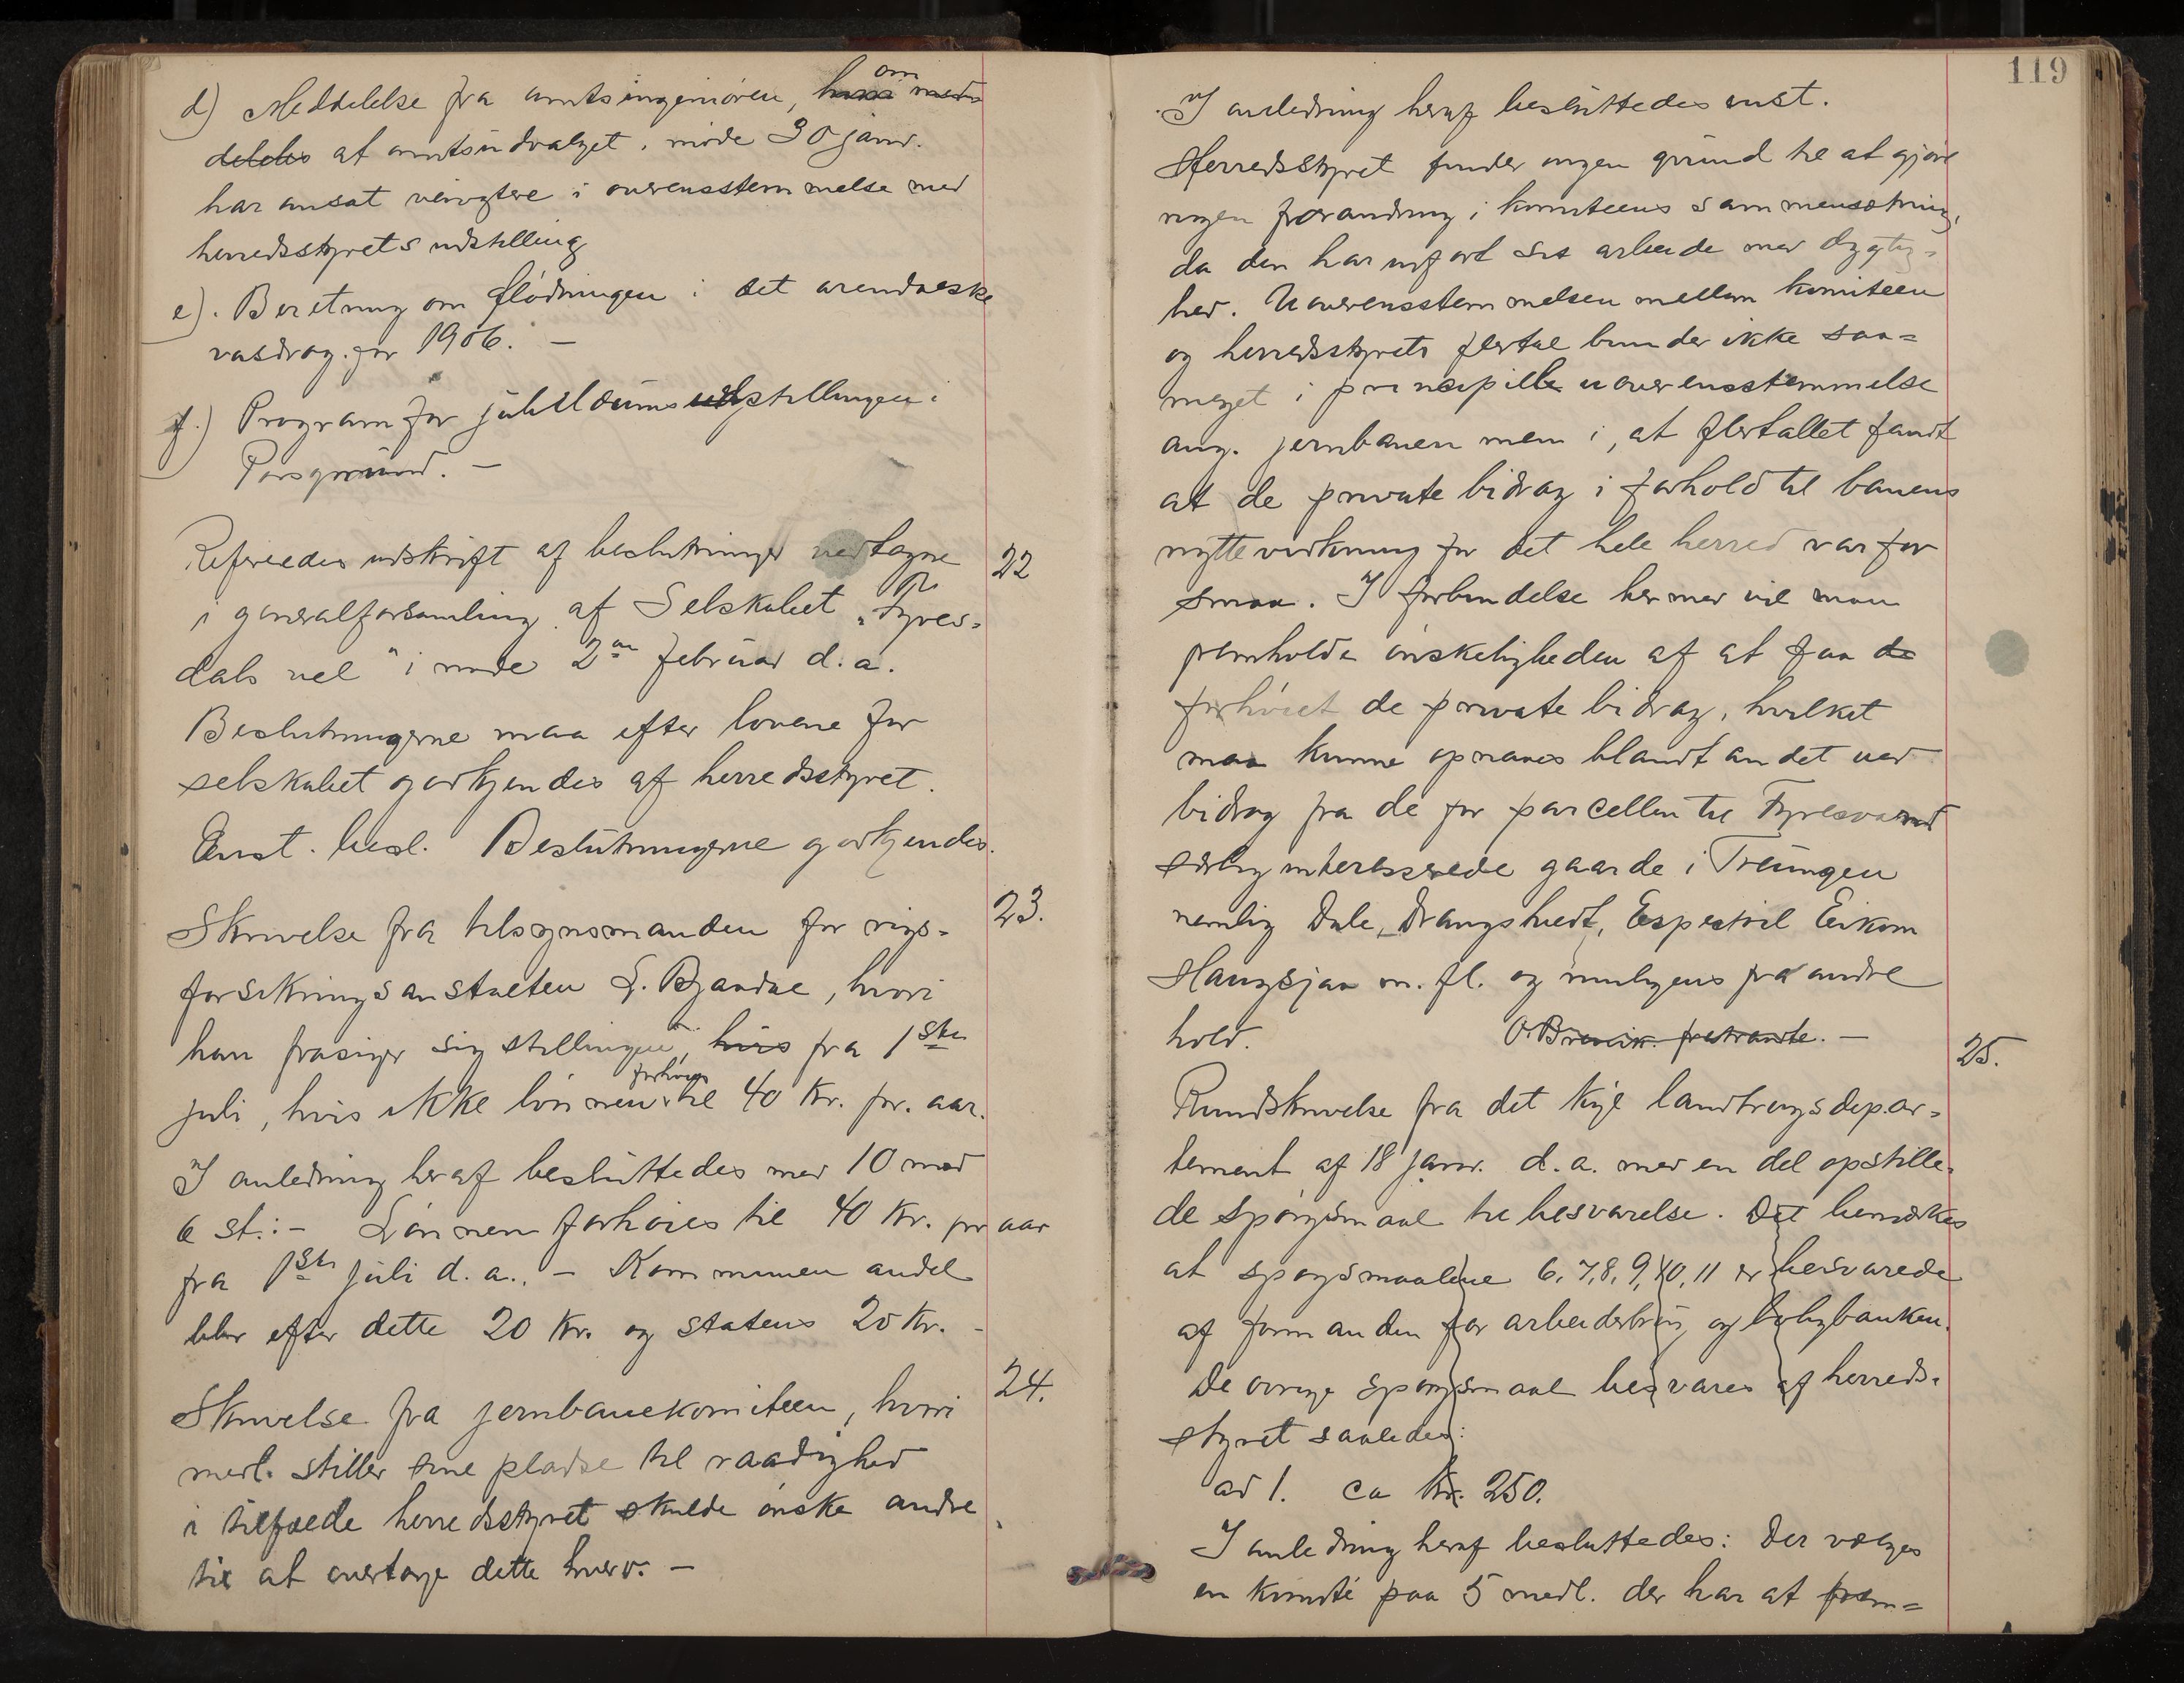 d) Meddelelse fra amtsingeniøren, om
at amtsudvalget i møde 30 janr.
har ansat veivogtere i overensstemmelse med
herredsstyrets indstilling
e). Beretning om flødningen i det arendalske
vasdrag for 1906. —
f.) Program for jubilæumsudstillingen i
Porsgrund. —
Refereredes udskrift af beslutninger vedtagne 22
i generalforsamling af Selskabet "Fyres=
dals vel" i møde 2den februar d.a.
Beslutningerne maa efter lovene for
selskabet godkjendes af herredsstyret.
Enst. besl. Beslutningerne godkjendes.
Skrivelse fra tilsynsmanden for rigs= 23.
forsikringsanstalten G. Bjaadal, hvori
han frasiger sig stillingen, hvis fra 1ste
juli, hvis ikke lønnen forhøies til 40 kr. pr. aar.
I anledning heraf besluttedes med 10 mod
6 st.: – Lønnen forhøies til 40 kr. pr aar
fra 1ste juli d.a.. – Kommunen andel
blir efter dette 20 kr. og statens 20 kr. –
Skrivelse fra jernbanekomiteen, hvori 24.
medl. stiller sine pladse til raadighed
i tilfælde herredsstyret skulde ønske andre
til at overtage dette hverv. –
119
I anledning heraf besluttedes enst.
Herredsstyret finder ingen grund til at gjøre
nogen forandring i komiteens sammensætning,
da den har udført sit arbeide med dygtig=
hed. Uoverensstemmelsen mellem komiteen
og herredsstyrets flertal bunder ikke saa=
meget i principiell uoverensstemmelse
ang. jernbanen men i, at flertallet fandt
at de private bidrag i forhold til banens
nyttevirkning for det hele herred var for
smaa. I forbindelse hermed vil man
fremholde ønskeligheden af at faa de
forhøiet de private bidrag, hvilket
maa kunne opnaaes blandt andet ved
bidrag fra de for parcellen til Fyresvand
særlig interesserede gaarde i Treungen
nemlig Dale, Drangstvedt, Espestøil Eikom
Haugsjaa m. fl. og muligens fra andre
hold. O. Brevik fratraadte. —
25.
Rundskrivelse fra det kgl landbrugsdepar=
tement af 18 janr. d.a. med en del opstille=
de spørgsmaal til besvarelse. Det bemærkes
at spørgsmaalene 6, 7, 8, 9, 10, 11 er besvarede
af formanden for arbeiderbrug og boligbanken.
De øvrige spørgsmaal besvares af herreds=
styret saaledes:
ad 1. ca kr. 250.
I anledning heraf besluttedes: Der vælges
en komité paa 5 medl. der har at frem=